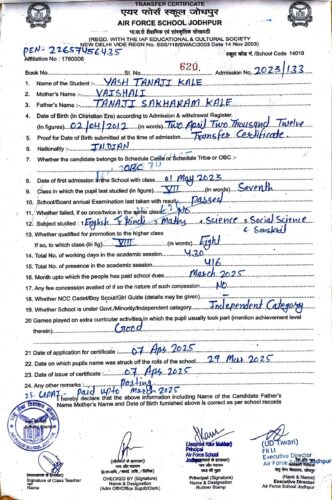 TRANSFER CERTIFICATE
एयर फोर्स स्कूल जोधपुर
AIR FORCE SCHOOL JODHPUR
(REGD. WITH THE IAF EDUCATIONAL & CULTURAL SOCIETY
NEW DELHI VIDE REGN NO. SSS/118/SWAC/2003 Date 14 Nov 2003)
PEN- 22657456435
Affiliation No : 1780006
/School Code : 14018
Book No. 620. Admission No. 2023/133
1 Name of the Student : YASH TANAJI KALE
2 Mother's Name : VAISHALI
3 Father's Name : TANAJI SAKHARAM KALE
4 Date of Birth (in Christian Era) according to Admission & withdrawal Register.
(In figures). 02/04/2012 (in words) Two April Two Thousand Twelve
5 Proof for Date of Birth submitted at the time of admission. Transfer Certificate.
6 Nationality :- INDIAN
7 Whether the candidate belongs to Schedule Caste or Schedule Tribe or OBC :-
OBC
8 Date of first admission in the School with class 01 May 2023
9 Class in which the pupil last studied (in figure) VII (in words) Seventh
10 School/Board annual Examination last taken with result Passed
11 Whether failed, if so once/twice in the same class NO
12 Subject studied : English & Hindi Maths Science Social Science
& Sanskrit
13 Whether qualified for promotion to the higher class
If so, to which class (in fig) VIII (in words) Eight
14 Total No. of working days in the academic session 420
15 Total No. of presence in the academic session 416
16 Month upto the people has paid school dues March 2025
17 Any fee concession availed of if so the nature of such concession. NO
18 Whether NCC Cadet/Boy Scout/Girl Guide (details may be given)
19 Whether School is under Govt./Minority/Independent category Independent Category
20 Games played on extra curricular activities,in which the pupil usually took part (mention achievement level
therein) Good
21 Date of application for certificate 07 Apr 2025
22 Date on which pupils name was struck off the rolls of the school 29 Mar 2025
23 Date of issue of certificate 07 Apr 2025
24 Any other remarks Posting
25 paid upto March 2025
I hereby declare that the above information including Name of the Candidate Father's
Name Mother's Name and Date of Birth furnished above is correct as per school records
Signature of Class Teacher
Name
CHECKED BY (Signature)
Name & Designation
(Adm Off/Office Supdt/Clerk)
Principal
Air Force School
Jodhpur
Signature
Name & Designation
Rubber Stamp
(UD Tiwari)
Flt Lt
Executive Director
Air Force School Jodhpur
Name & Designation
Executive Director